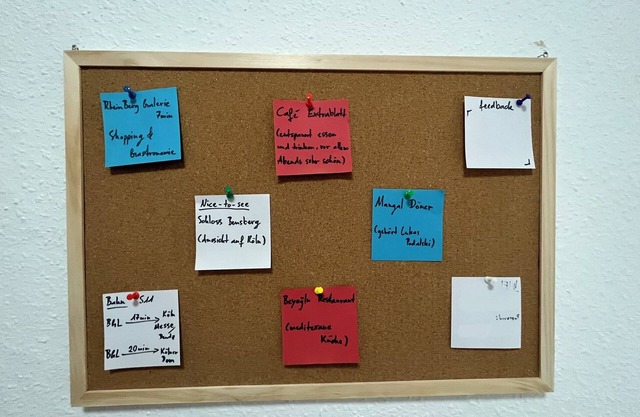 RheinBerg Galerie
7min
Shopping &
Gastronomie
Café Extrablatt
(entspannt essen
und trinken, vor allem
Abends sehr schön)
feedback
Nice-to-see
Schloss Bensberg
(Aussicht auf Köln)
Mangal Döner
(gehört Lukas
Podolski)
Bahn
BGL 17min Köln
Messe
Deutz
BGL 20min Kölner
Dom
Beyoğlu Restaurant
(mediterrane
Küche)